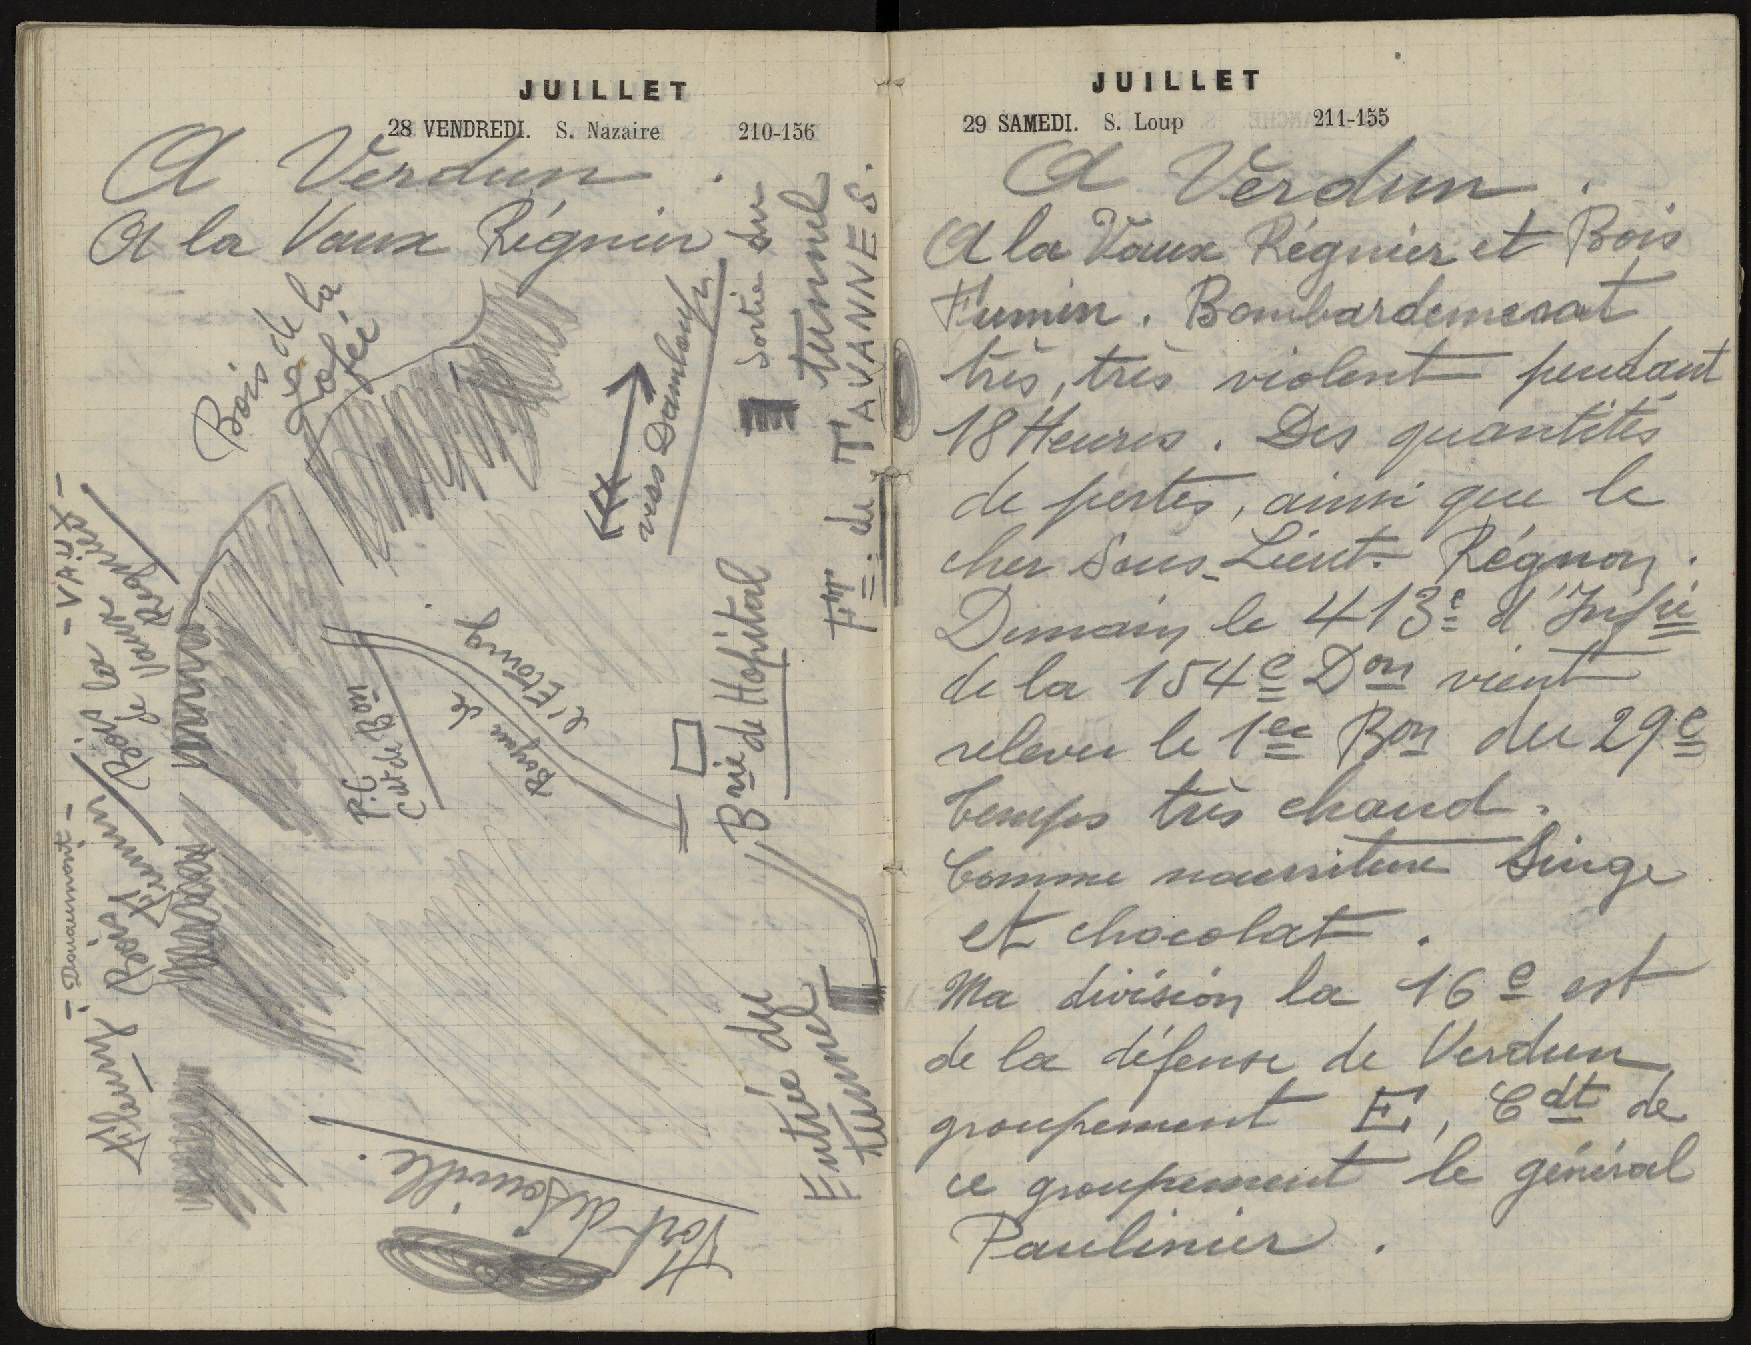 JUILLET
28 VENDREDI. S. Nazaire 210-156
A Verdun.
A la Vaux Régnier
Bois de la
Lofée
vers Damloup
Sortie du
tunnel
Ft de TAVANNES.
- VAUX -
Bois la
de Vaux Régnier
- Douaumont -
Bois Fumin
Fleury
P.C
Cdt de Bon
Boyau de
l'Etang
Brie de Hopital
Entrée du
tunnel
Fort de Souville.
JUILLET
29 SAMEDI. S. Loup 211-155
A Verdun.
A la Vaux Régnier et Bois
Fumin. Bombardement
très, très violent pendant
18 Heures. Des quantités
de pertes, ainsi que le
cher Sous-Lieut. Régnon.
Demain le 413e d'Infie
de la 154e Don vient
relever le 1er Bon du 29e
Temps très chaud.
Comme nourriture Singe
et chocolat.
Ma division la 16e est
de la défense de Verdun
groupement E, Cdt de
ce groupement le général
Paulinier.